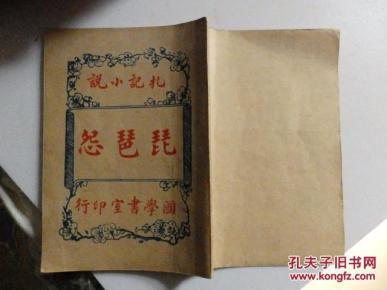 札記小說
琵琶怨
國學書室印行
孔夫子旧书网